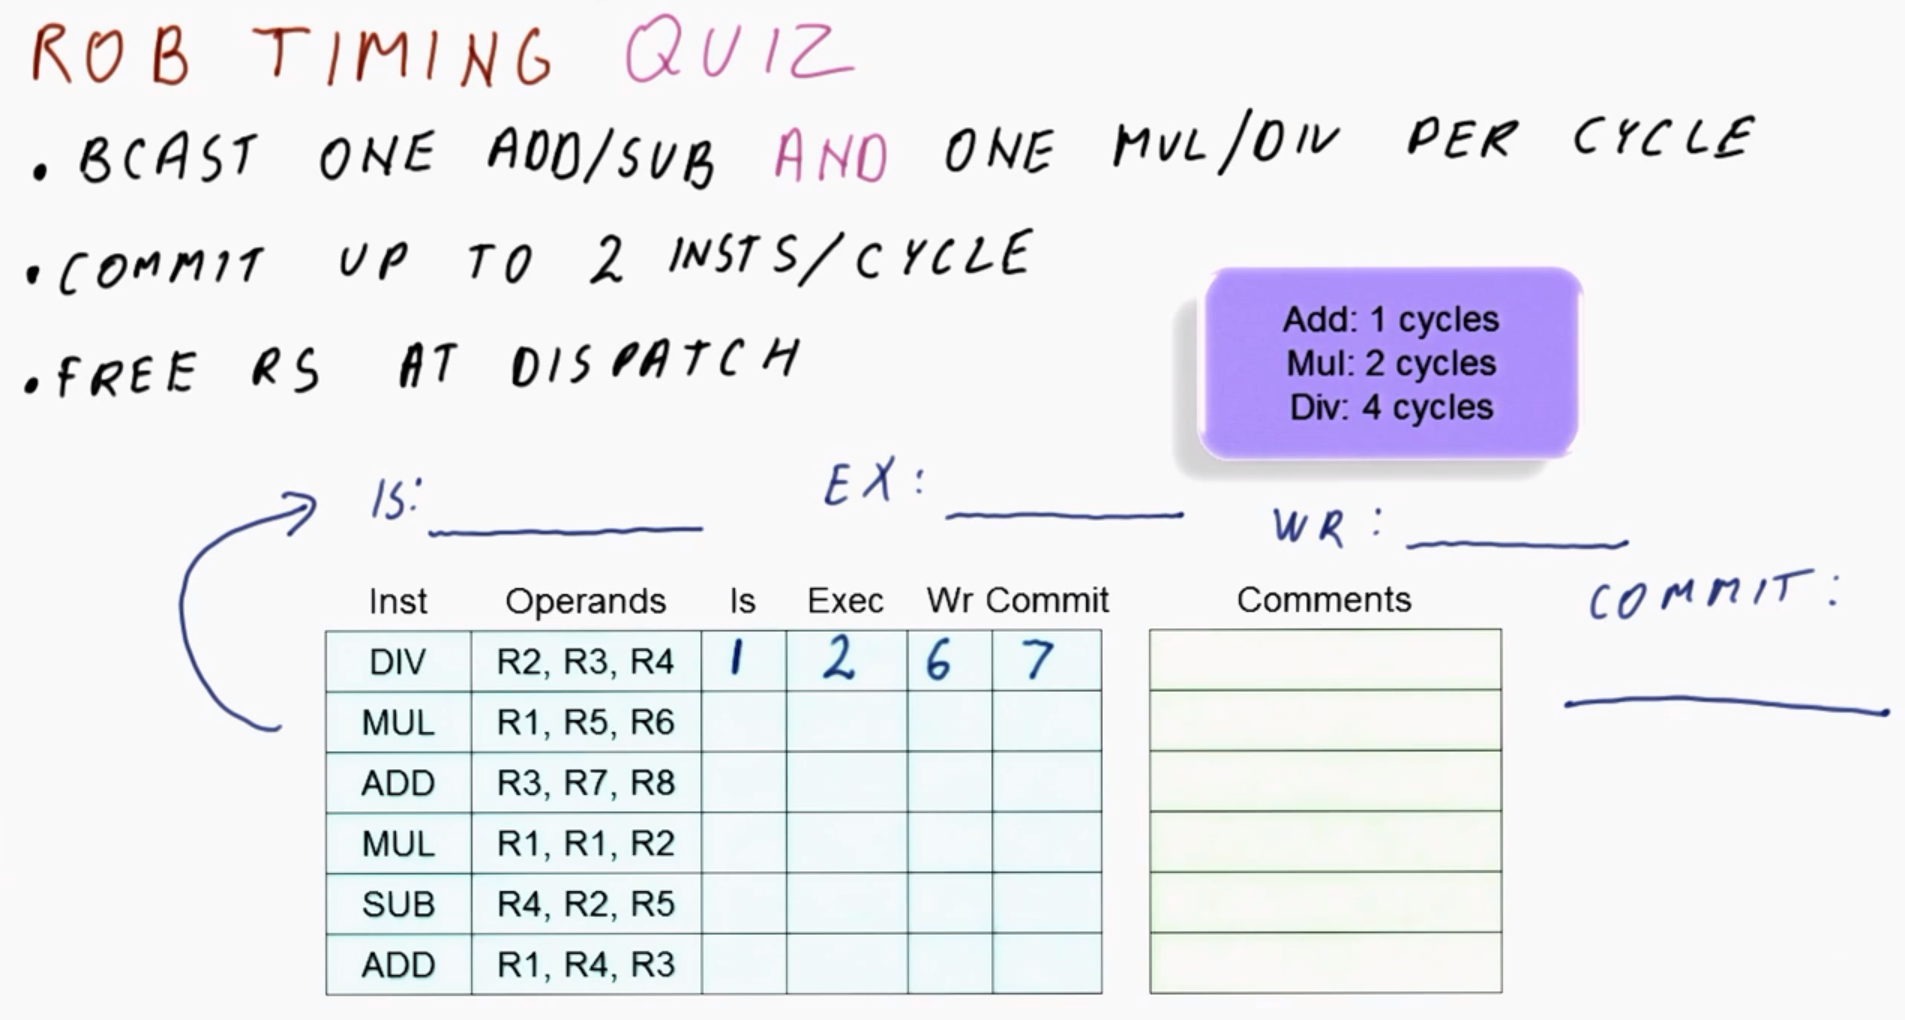 ROB TIMING QUIZ
• BCAST ONE ADD/SUB AND ONE MUL/DIV PER CYCLE
• COMMIT UP TO 2 INSTS/CYCLE
• FREE RS AT DISPATCH
Add: 1 cycles
Mul: 2 cycles
Div: 4 cycles
IS: EX: WR: COMMIT:
Inst Operands Is Exec Wr Commit Comments
DIV R2, R3, R4 1 2 6 7
MUL R1, R5, R6
ADD R3, R7, R8
MUL R1, R1, R2
SUB R4, R2, R5
ADD R1, R4, R3